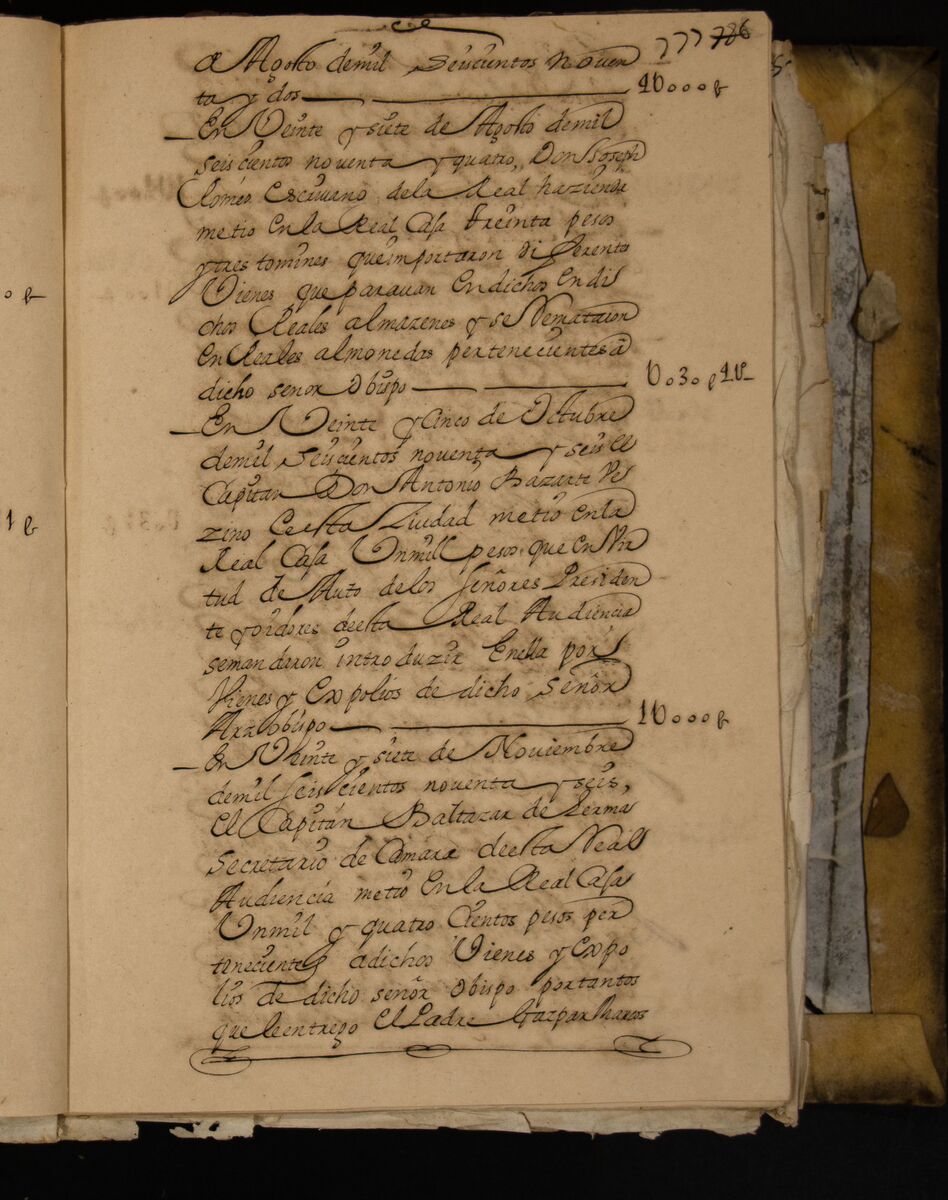 777 786
a Agosto demil Seiscientos noven
ta y dos 1U000 p
En Veinte y siete de Agosto demil
seiscientos noventa y quatro, Don Joseph
Romeo escrivano dela Real hazienda
metio en la Real Casa treinta pesos
y tres tomines que importaron diferentes
Vienes que paravan en dichos en di
chos Reales almazenes y se Remataron
en Reales almonedas pertenecientes a
dicho señor Obispo U030 p
En Veinte y Cinco de Octubre
demil Seiscientos noventa y seis el
Capitan Don Antonio Bazarte Ve
zino de esta Ciudad metio en la
Real Casa Un mill pesos que en Vir
tud de Auto de los Señores Presiden
te y oidores de esta Real Audiencia
se mandaron introduzir en ella por
Vienes y Expolios de dicho señor
Arzobispo 1U000 p
En Veinte y siete de Noviembre
demil seiscientos noventa y seis,
el Capitán Baltazar de Lerma
Secretario de Camara de esta Real
Audiencia metio en la Real Casa
Un mil y quatro cientos pesos per
tenecientes a dichos Vienes y expo
lios de dicho señor Obispo por tantos
que le entrego el Padre Gazpar